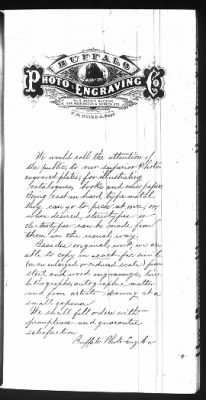 BUFFALO
PHOTO-ENGRAVING CO.
We would call the attention of
the public to our superior Photo
engraved plates, for illustrating
Catalogues, books and newspapers.
Being cast in hard type metal
they can go to press at once, or
when desired, stereotypes or
electrotypes can be made from
them in the usual way.
Besides original work, we are
able to copy in exact fac simile
(or on enlarged or reduced scale) from
steel and wood engravings, line
lithographs, autographic matter
and from artists drawing at a
small expense.
We shall fill orders with
promptness and guarantee
satisfaction.
Buffalo Photo-Eng. Co.